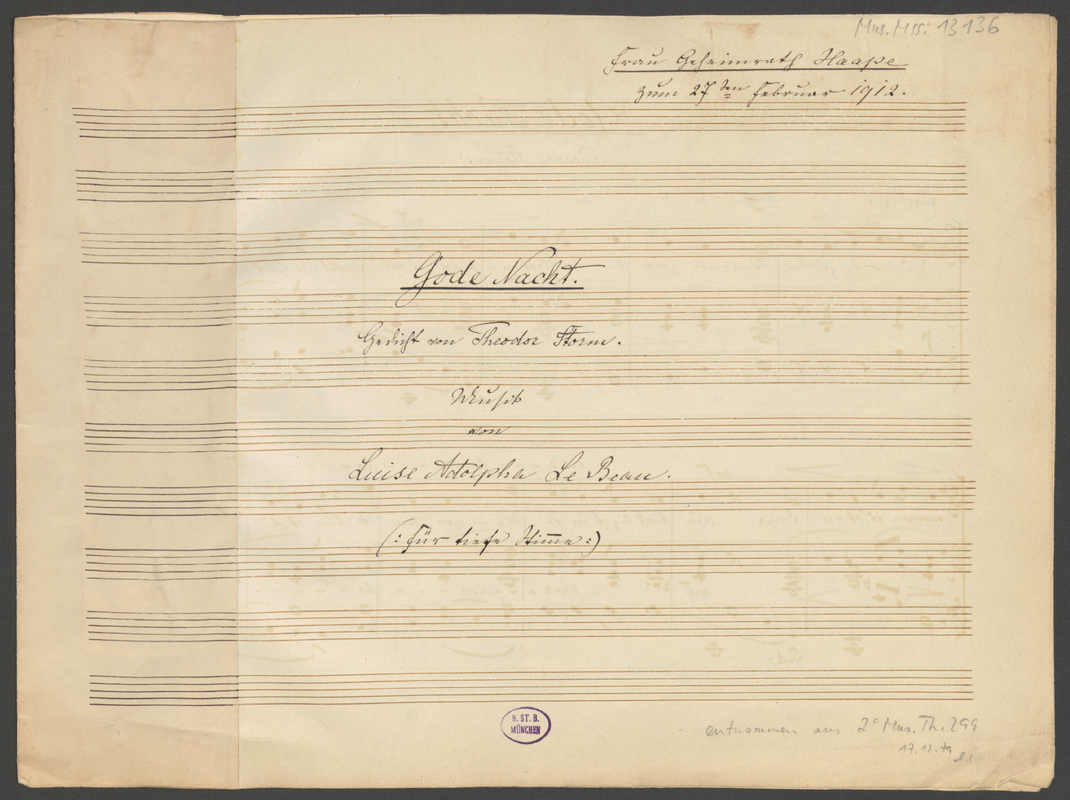 Mus. Mss. 13136
Frau Geheimrath Haape
zum 27ten Februar 1912.
Gode Nacht.
Gedicht von Theodor Storm.
Musik
von
Luise Adolpha Le Beau.
(: für tiefe Stimme :)
B. ST. B.
MÜNCHEN
entnommen aus 2° Mus. Th. 299